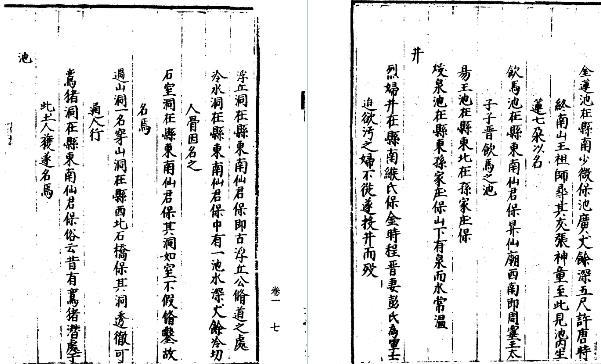 金蓮池在縣南少微保池廣丈餘深五尺許唐時
終南山王祖師尋其友張神童至此見池内生
蓮七朵以名
飲馬池在縣東南仙君保昇仙廟西南即周靈王太
子晉飲馬之池
易王池在縣東北在孫家庄保
煖泉池在縣東孫家庄保山下有泉而水常溫
井
烈婦井在縣南緱氏保金時程晋妻彭氏為軍士
迫欲汚之婦不従遂投井而歿
卷一
七
浮丘洞在縣東南仙君保即古浮丘公脩道之處
冷水洞在縣東南仙君保中有一池水深丈餘冷切
人骨因名之
石室洞在縣東南仙君保其洞如室不假脩鑿故
名焉
過山洞一名穿山洞在縣西北石橋保其洞透徹可
通人行
鴛猪洞在縣東南仙君保俗云昔有鴛猪潛處于
此土人獲遂名焉
池